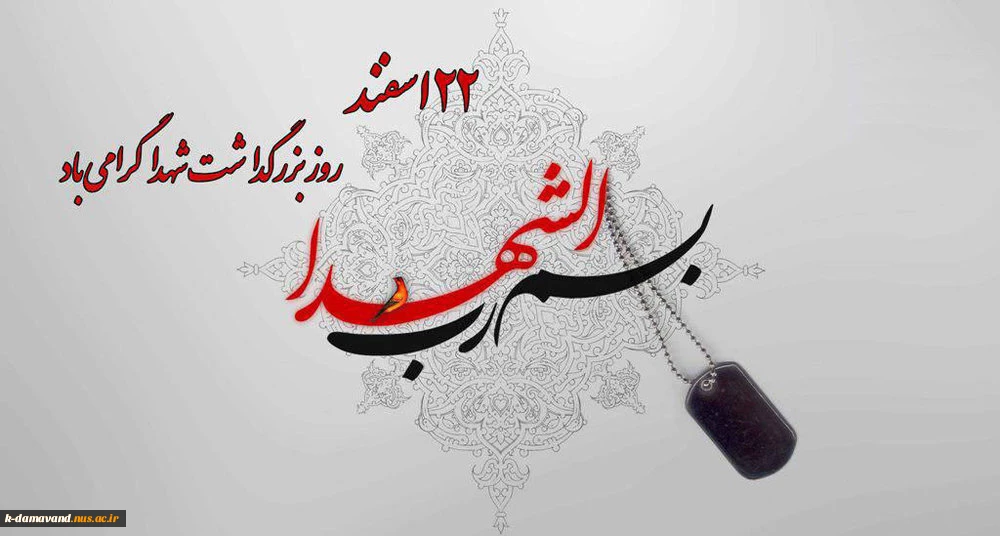 ۲۲ اسفند
روز بزرگداشت شهدا گرامی باد
بسم رب الشهدا
k-damavand.nus.ac.ir